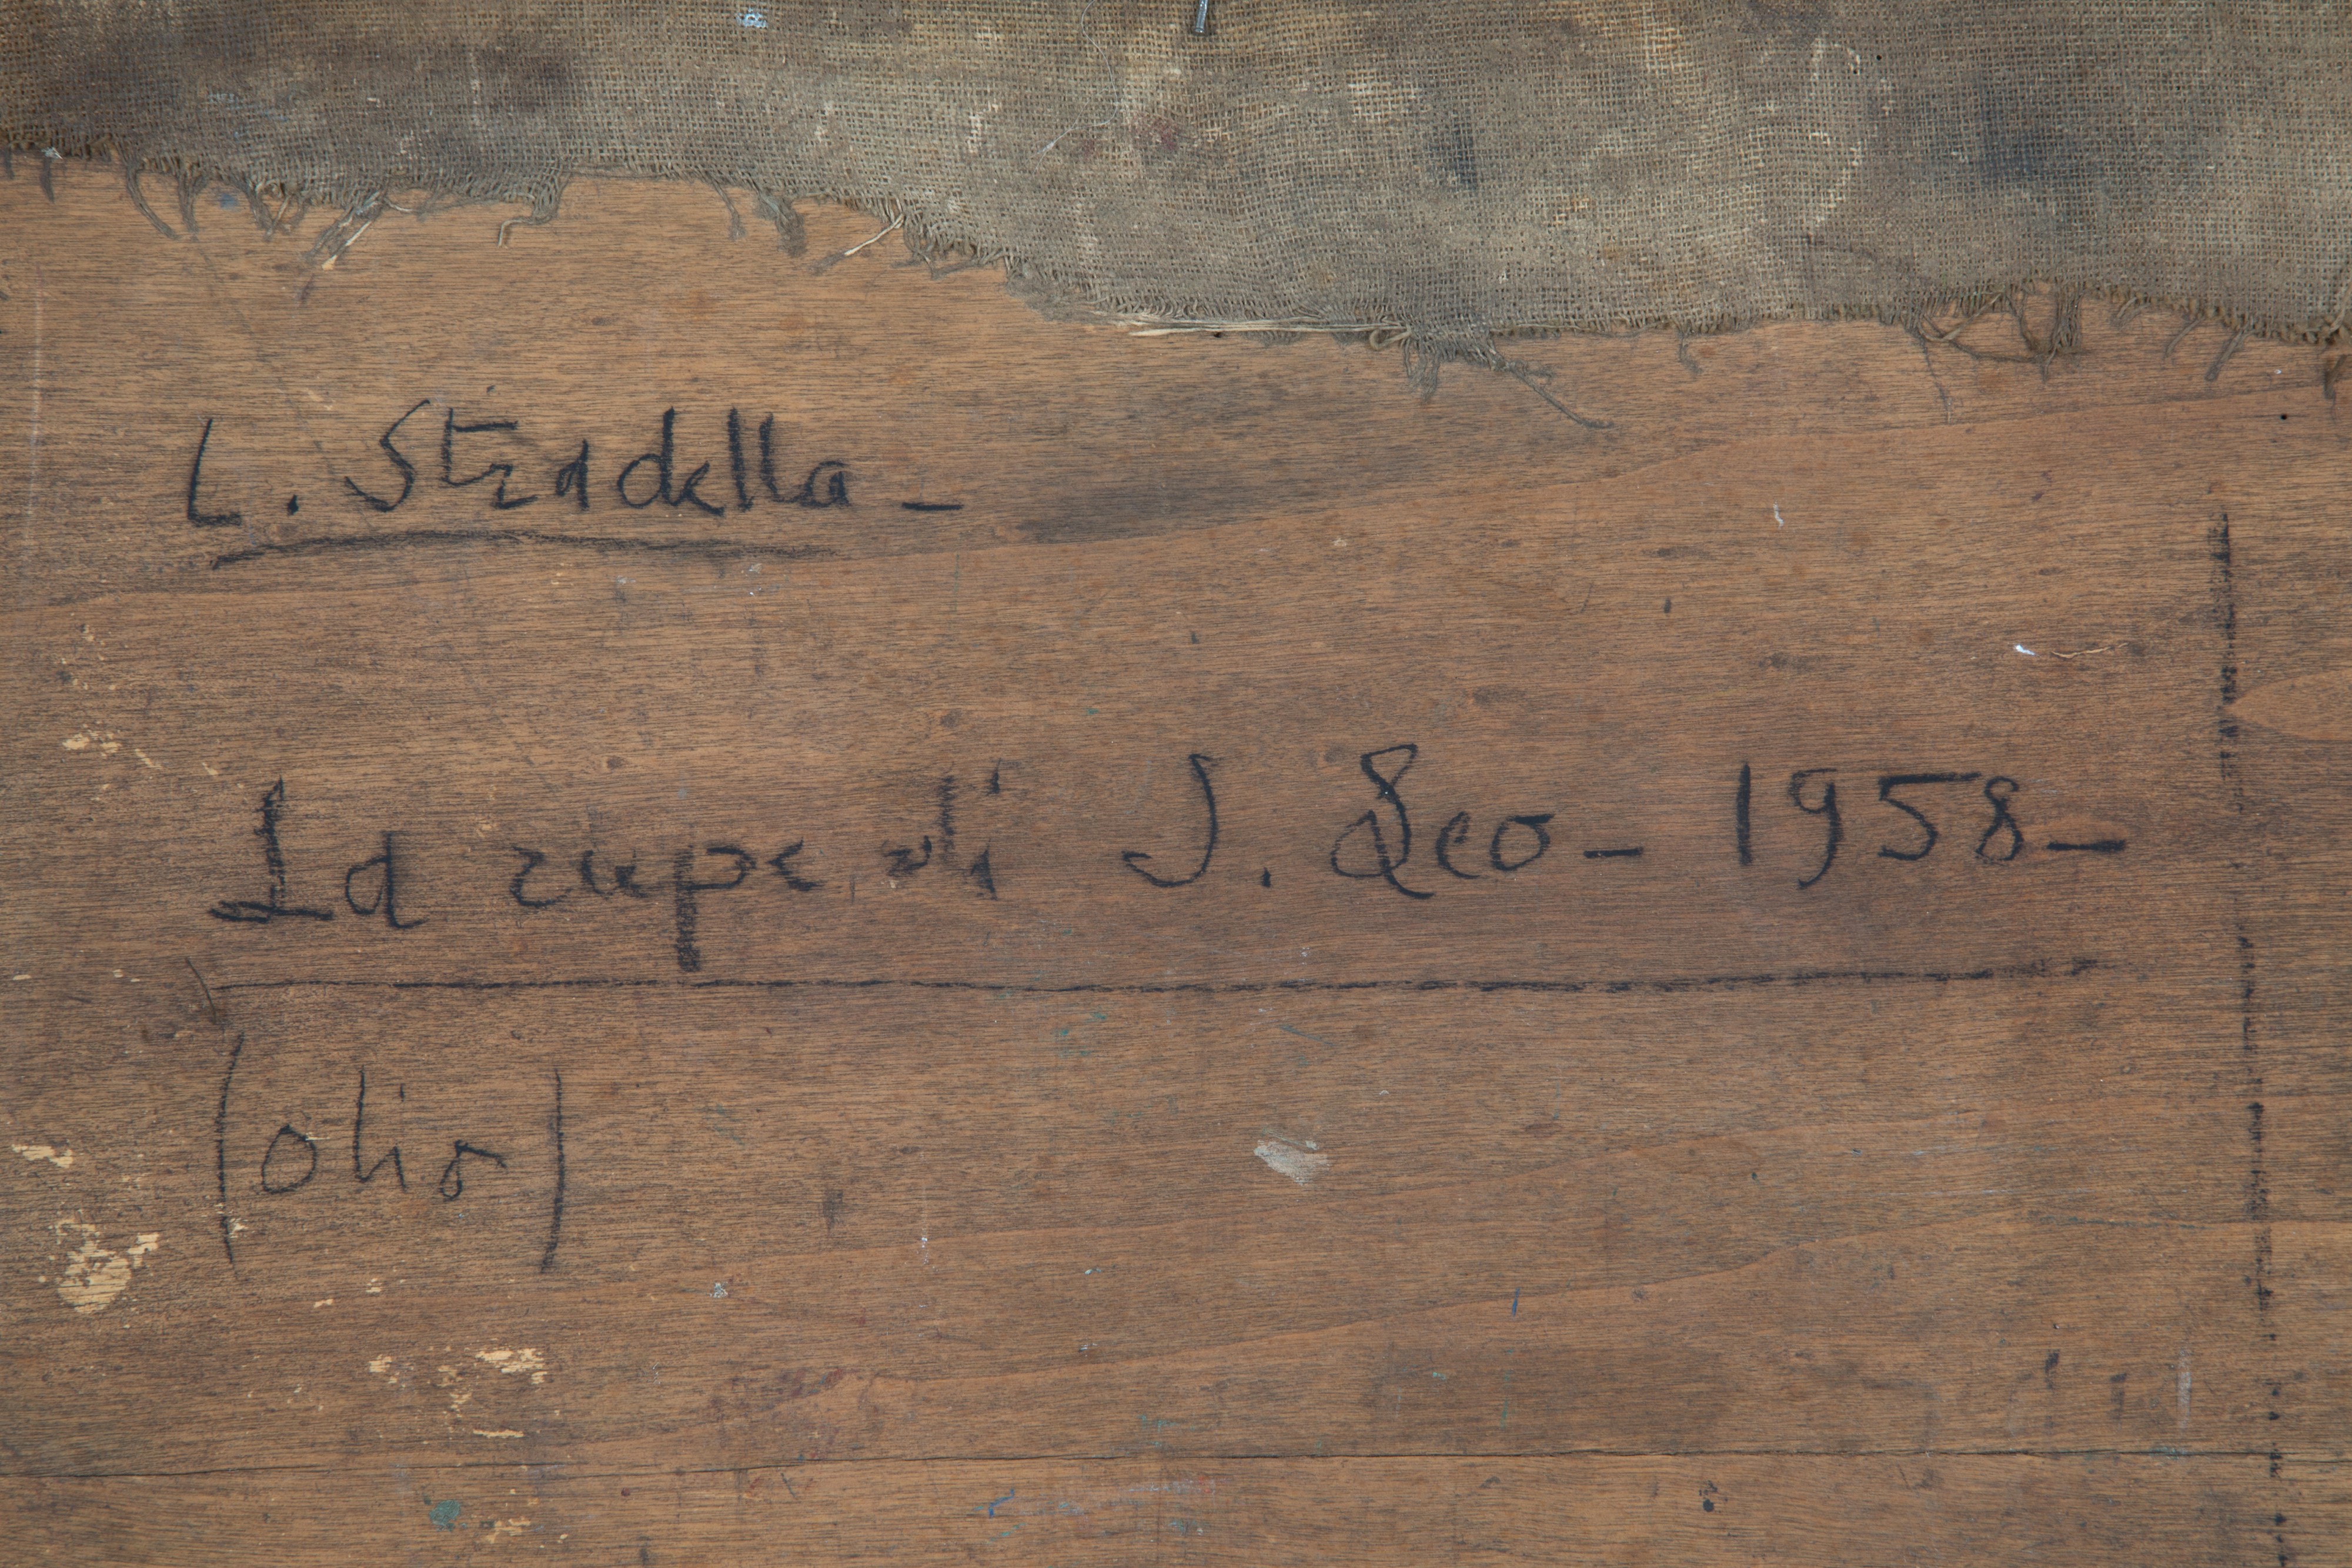 L. Stradella -
La rupe di S. Leo - 1958 -
(olio)